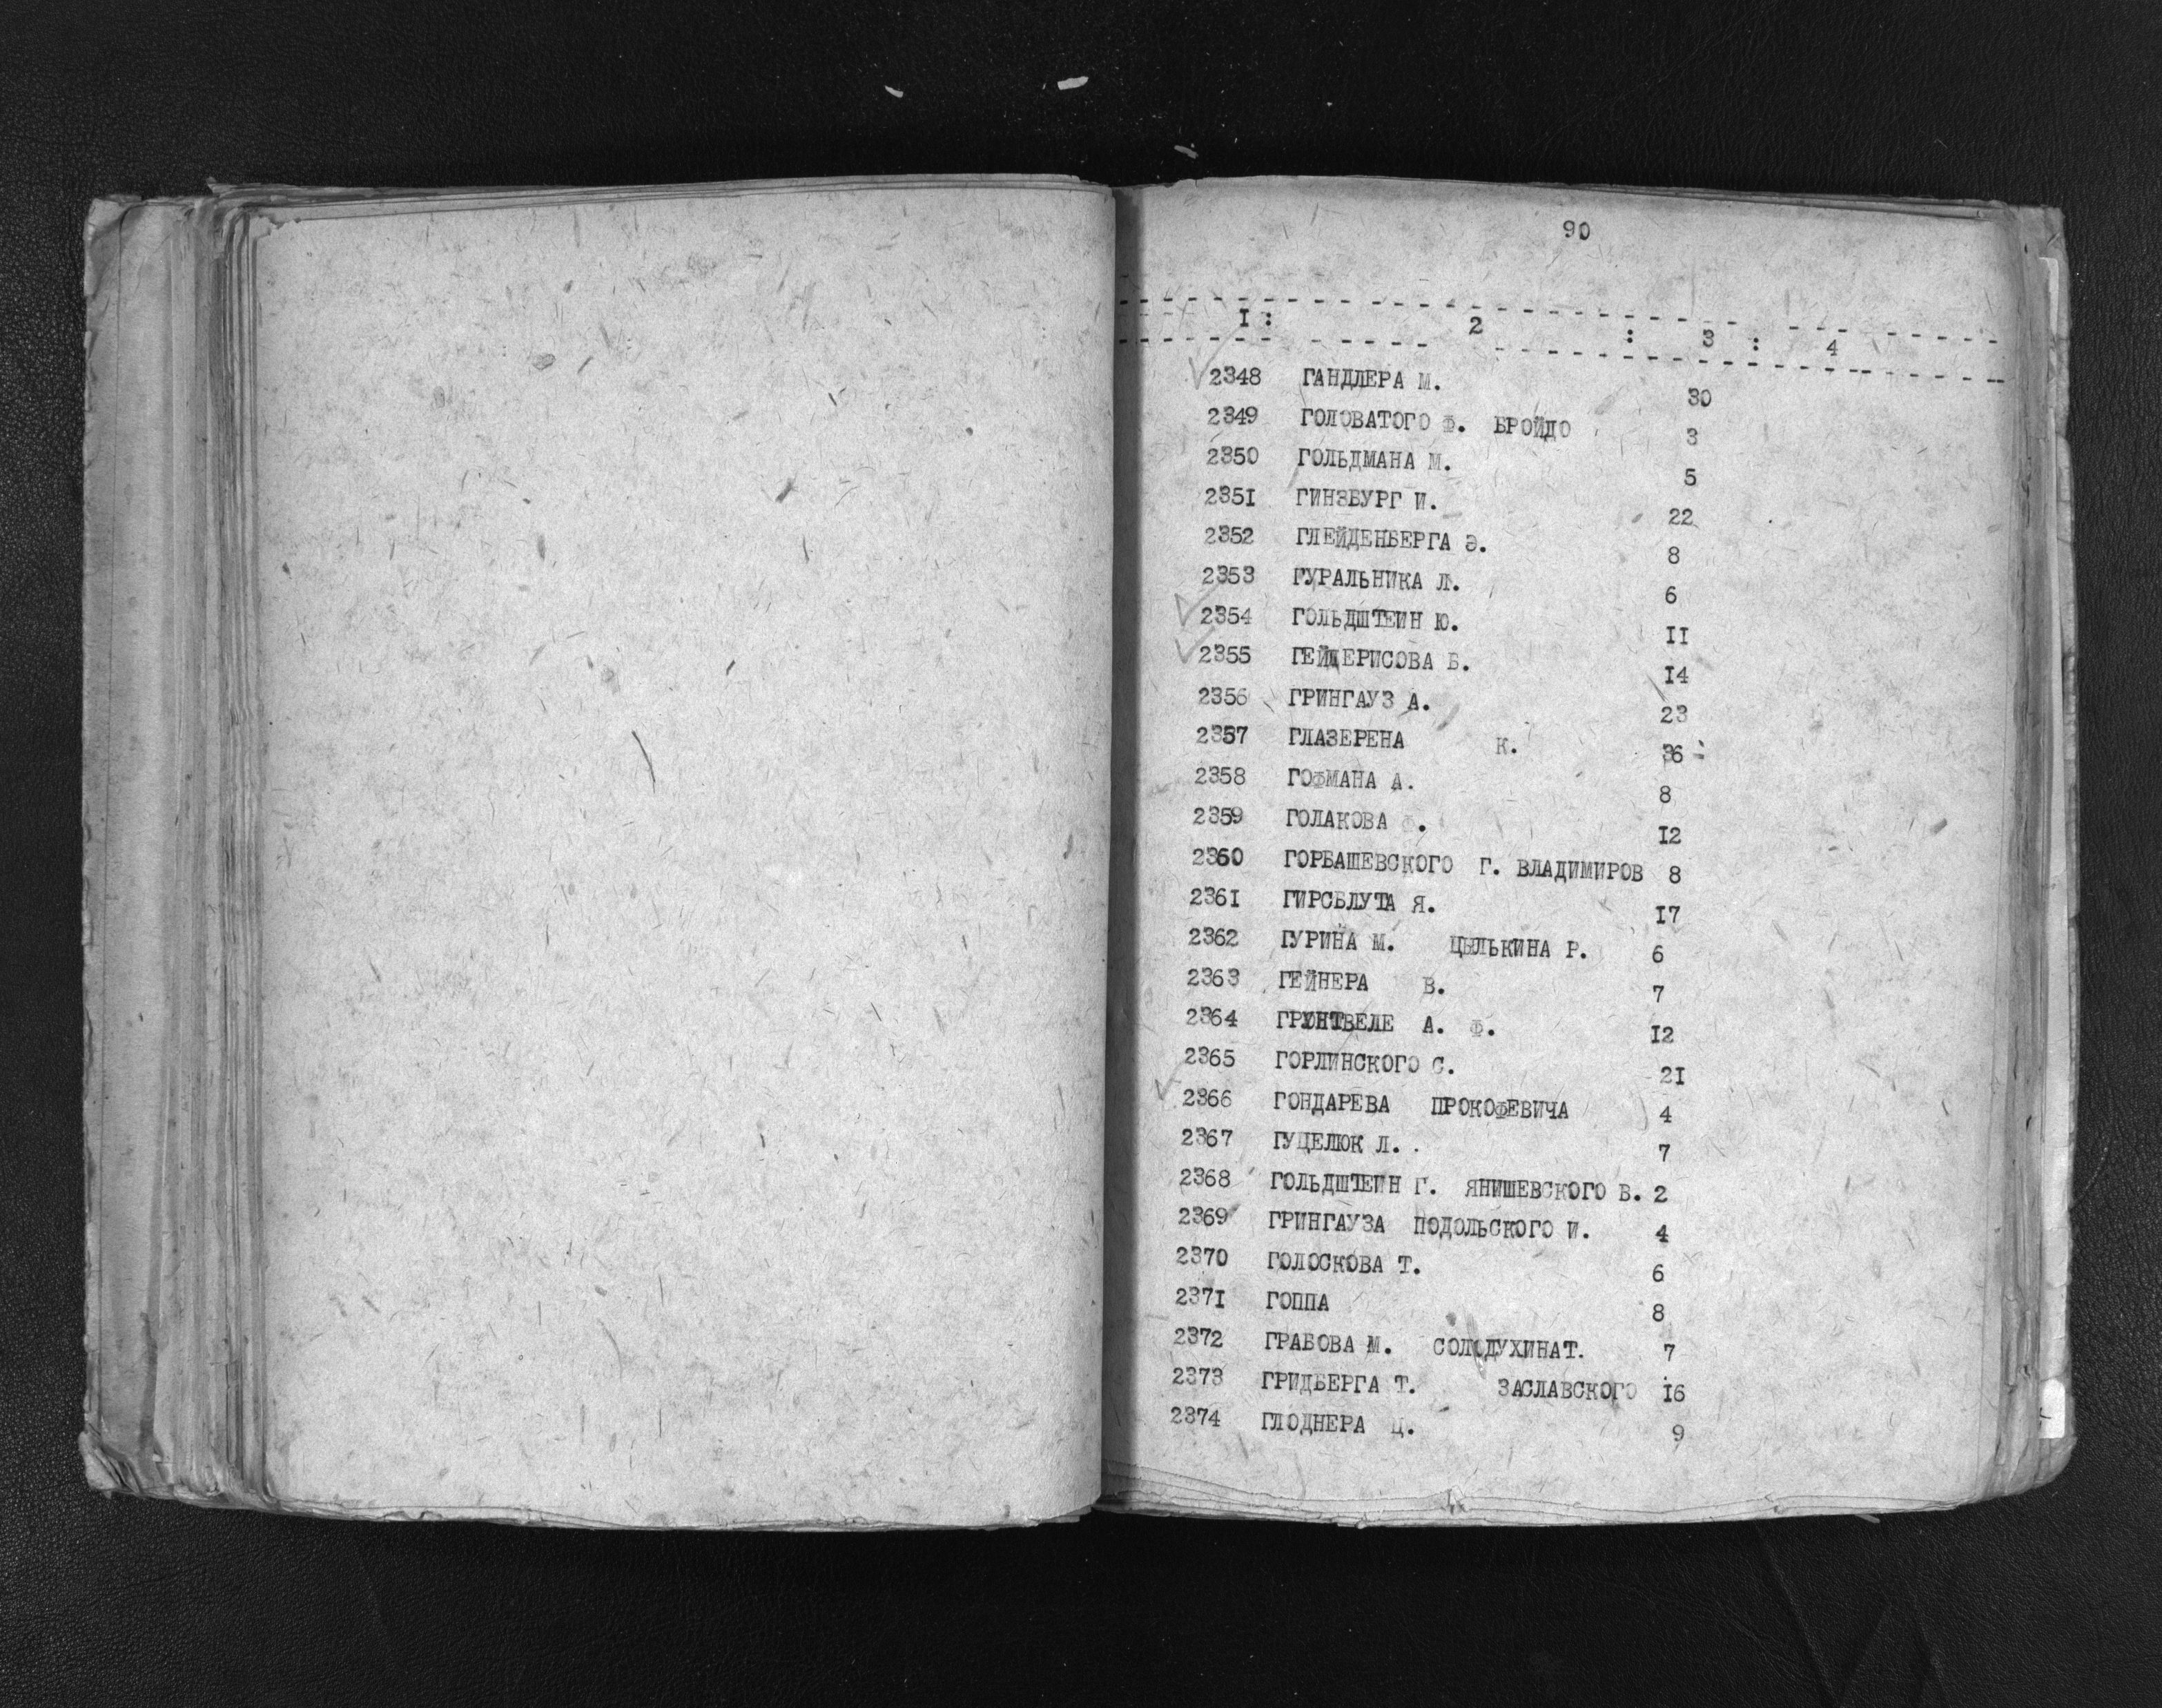 90
I : 2 : 3 : 4
2348 ГАНДЛЕРА М. 30
2349 ГОЛОВАТОГО Ф. БРОЙДО 3
2350 ГОЛЬДМАНА М. 5
2351 ГИНЗБУРГ И. 22
2352 ГЛЕЙДЕНБЕРГА Э. 8
2353 ГУРАЛЬНИКА Л. 6
2354 ГОЛЬДШТЕИН Ю. II
2355 ГЕЙДЕРИСОВА Б. I4
2356 ГРИНГАУЗ А. 23
2357 ГЛАЗЕРЕНА К. 36
2358 ГОФМАНА А. 8
2359 ГОЛАКОВА Ф. I2
2360 ГОРБАШЕВСКОГО Г. ВЛАДИМИРОВ 8
236I ГИРСБЛУТА Я. I7
2362 ГУРИНА М. ЦЫЛЬКИНА Р. 6
2363 ГЕЙНЕРА В. 7
2364 А. Ф. I2
2365 ГОРЛИНСКОГО С. 2I
2366 ГОНДАРЕВА ПРОКОФЕВИЧА 4
2367 ГУЦЕЛЮК Л. 7
2368 ГОЛЬДШТЕИН Г. ЯНИШЕВСКОГО В. 2
2369 ГРИНГАУЗА ПОДОЛЬСКОГО И. 4
2370 ГОЛОСКОВА Т. 6
237I ГОППА 8
2372 ГРАБОВА М. СОЛОДУХИНАТ. 7
2373 ГРИДБЕРГА Т. ЗАСЛАВСКОГО I6
2374 ГЛОДНЕРА Ц. 9